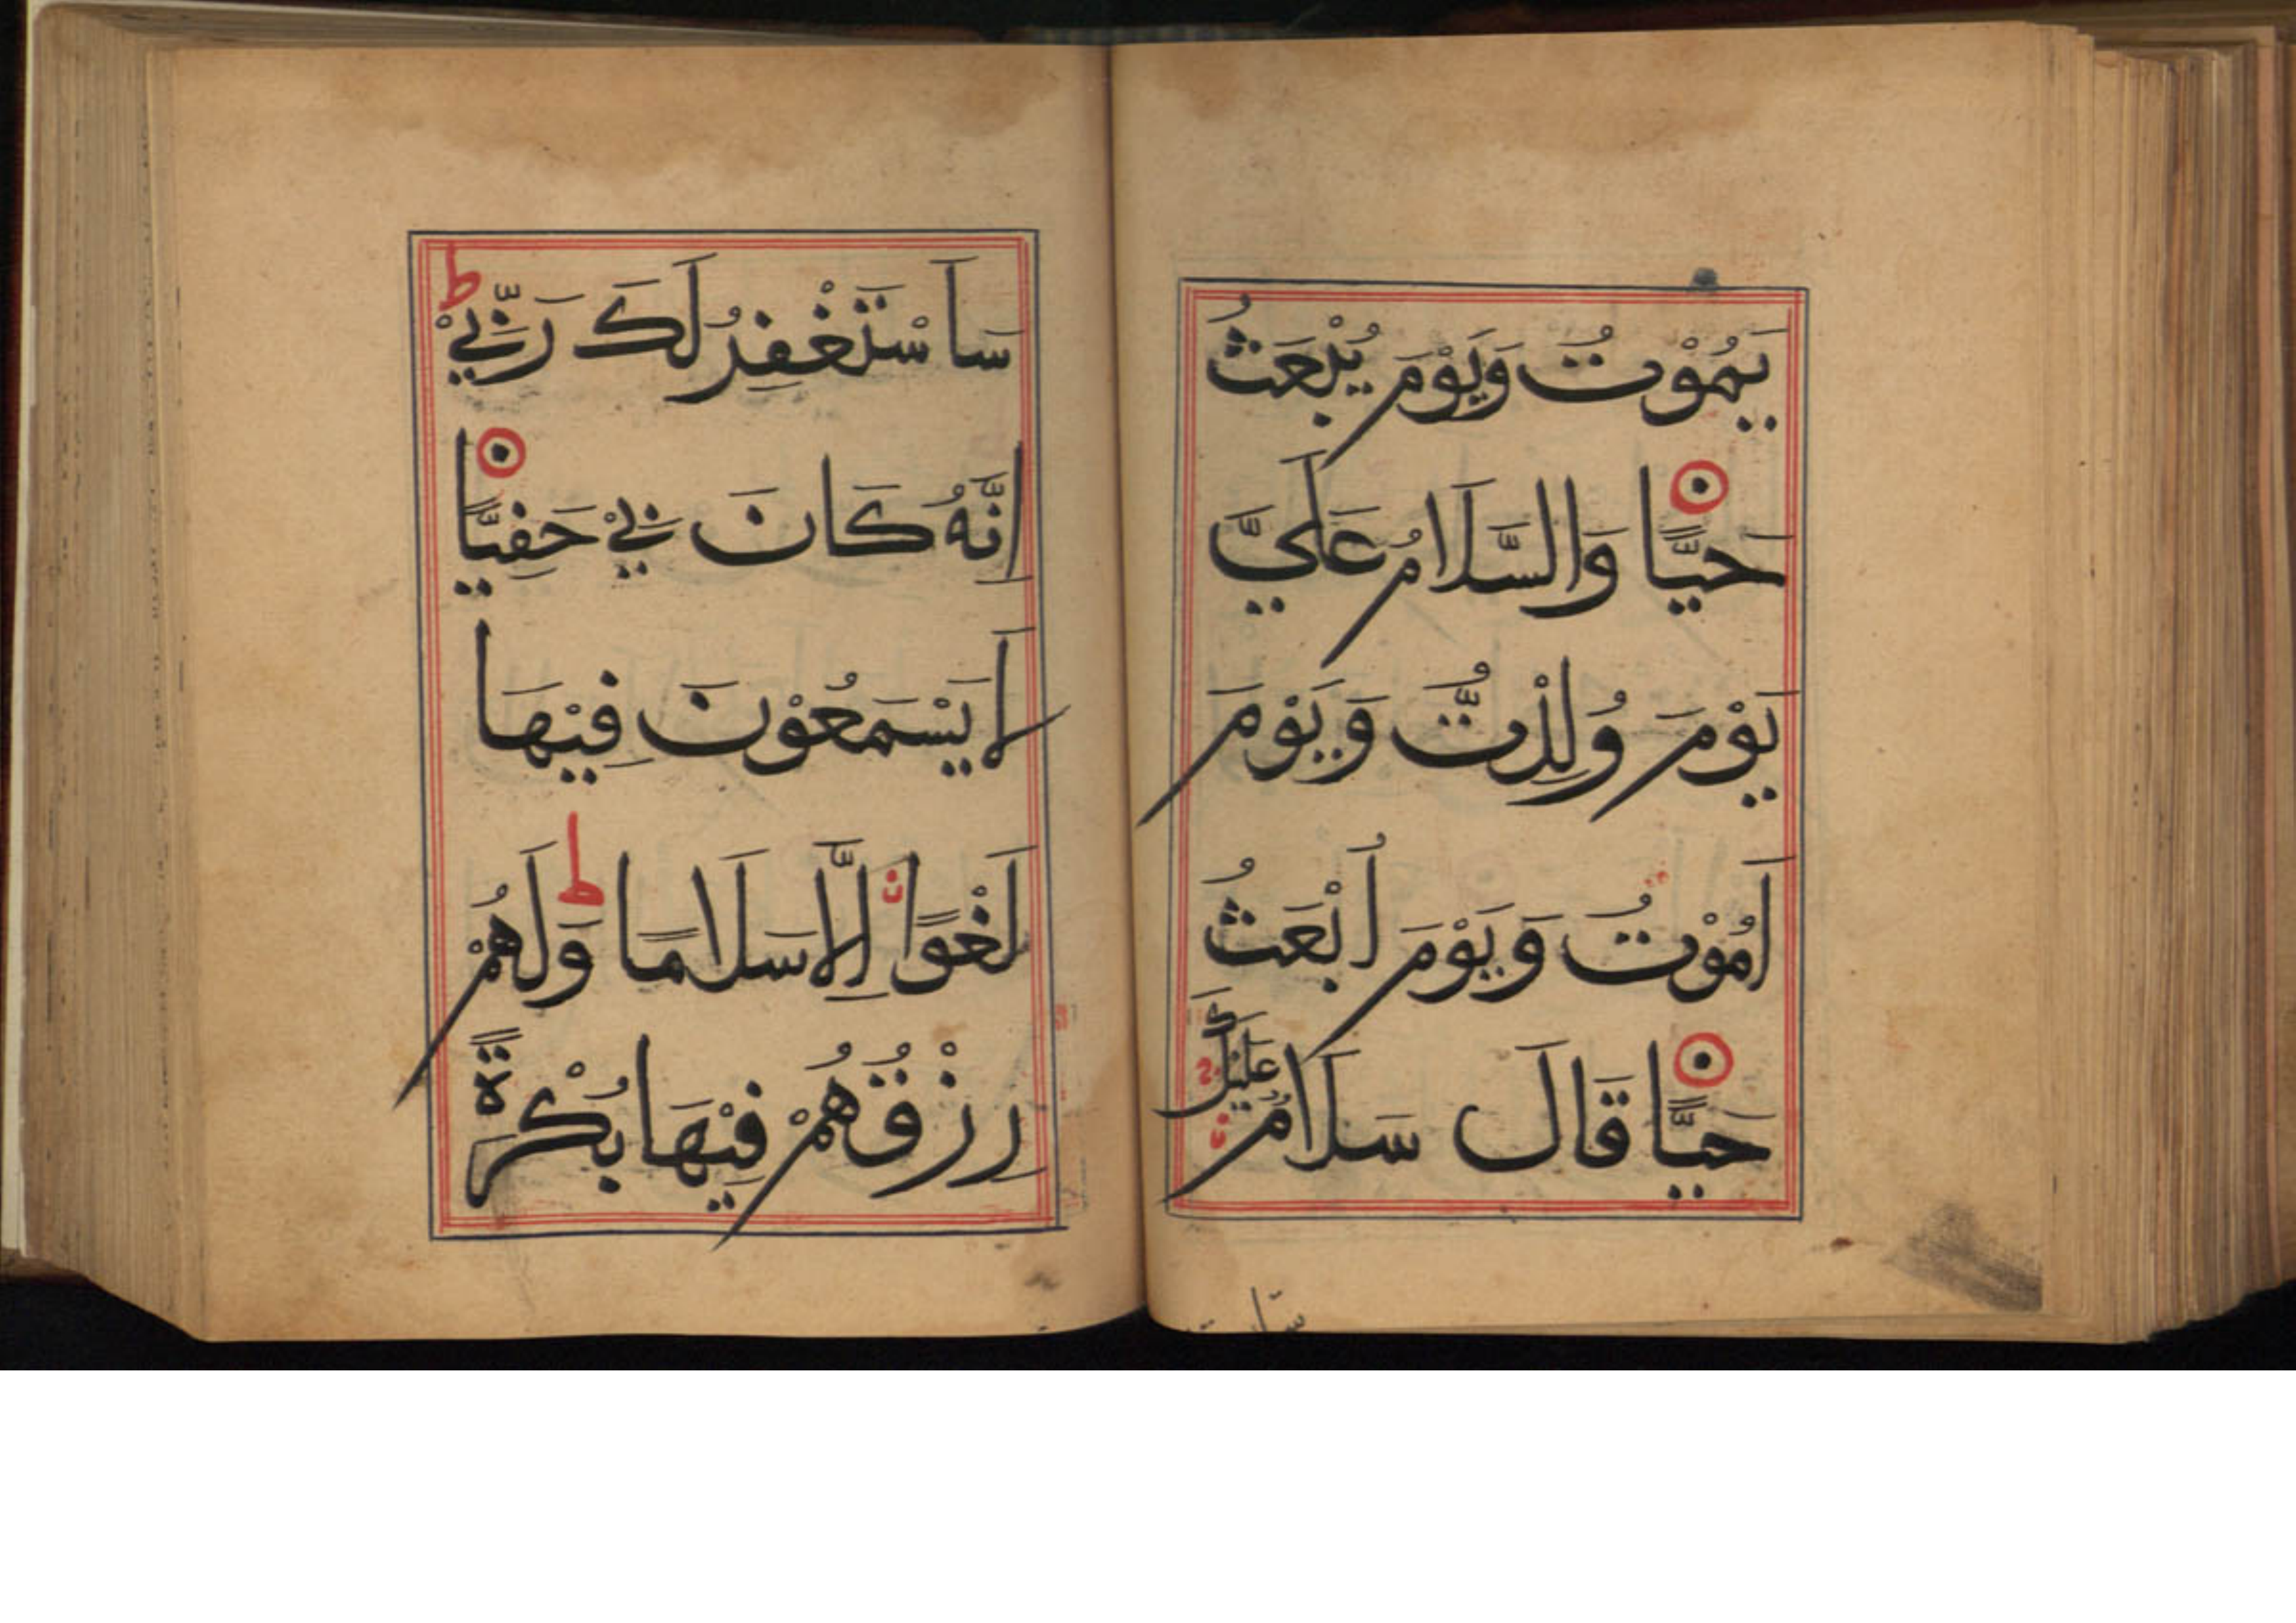 يَمُوْتُ وَيَوْمَ يُبْعَثُ
حَيًّا وَالسَّلَامُ عَلَيَّ
يَوْمَ وُلِدْتُّ وَيَوْمَ
اَمُوْتُ وَيَوْمَ اُبْعَثُ
حَيًّا قَالَ سَلَامٌ عَلَيْكَ
سَاَسْتَغْفِرُ لَكَ رَبِّيْ ط
اِنَّهٗ كَانَ بِيْ حَفِيًّا
لَا يَسْمَعُوْنَ فِيْهَا
لَغْوًا اِلَّا سَلَامًا ط وَلَهُمْ
رِزْقُهُمْ فِيْهَا بُكْرَةً